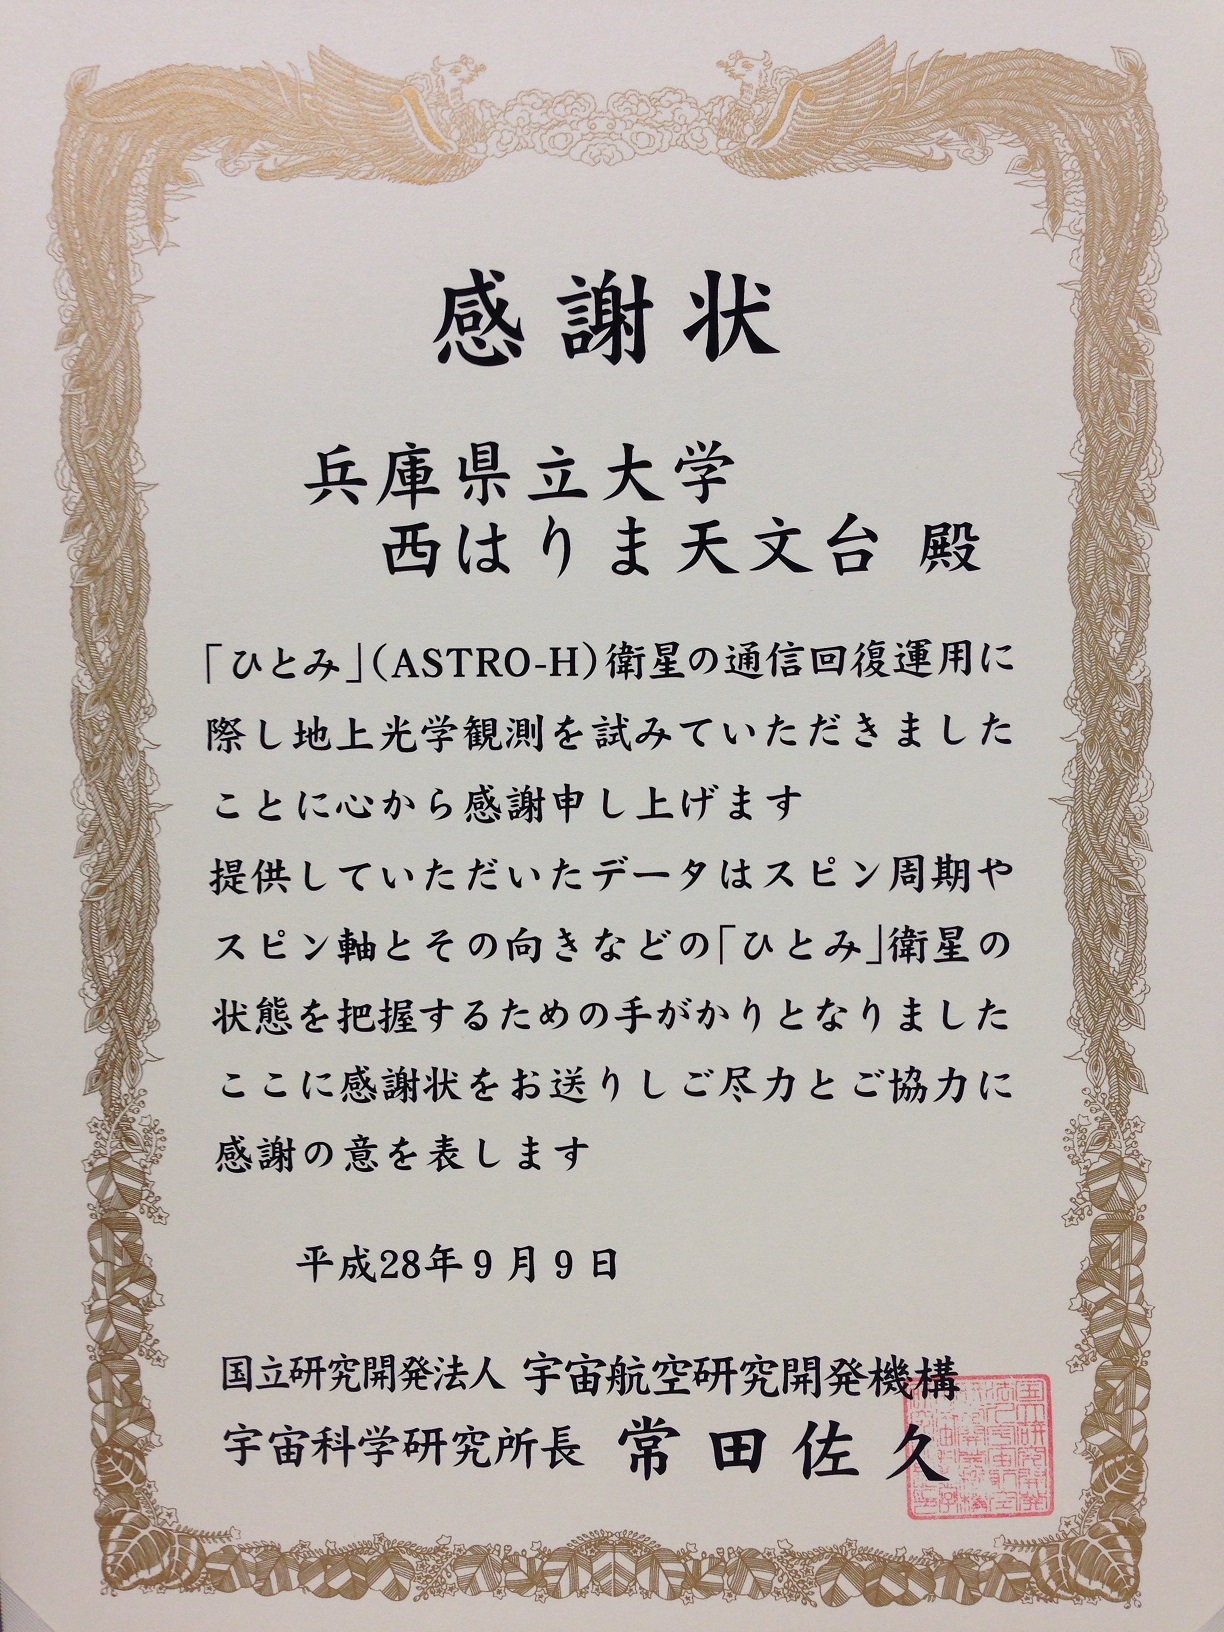 感謝状
兵庫県立大学
西はりま天文台 殿
「ひとみ」(ASTRO-H)衛星の通信回復運用に
際し地上光学観測を試みていただきました
ことに心から感謝申し上げます
提供していただいたデータはスピン周期や
スピン軸とその向きなどの「ひとみ」衛星の
状態を把握するための手がかりとなりました
ここに感謝状をお送りしご尽力とご協力に
感謝の意を表します
平成28年9月9日
国立研究開発法人 宇宙航空研究開発機構
宇宙科学研究所長 常田佐久